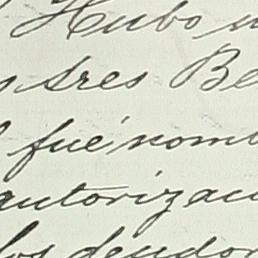 Hubo u
s Sres Be
l fué nomb
autorizac
los deudor